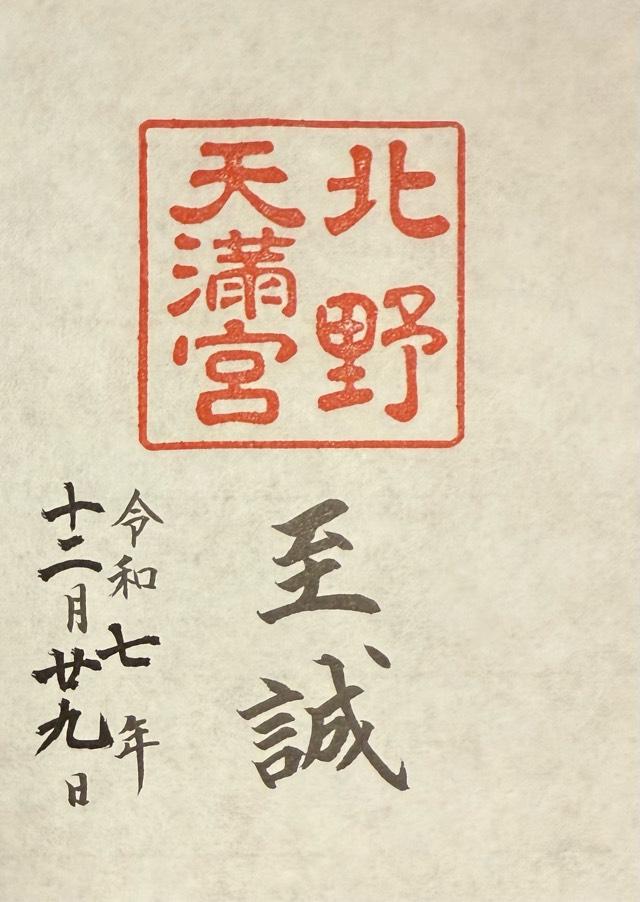 北野
天満宮
至誠
令和七年
十二月廿九日